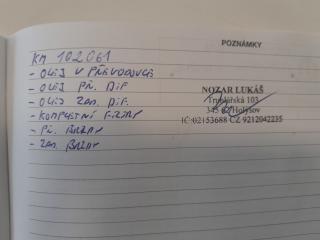 POZNÁMKY
KM 102061
- OLEJ V PŘEVODOVCE
- OLEJ PŘ. DIF
- OLEJ ZAD. DIF.
- KOMPLETNÍ FILTRY
- PŘ. BRZDY
- ZAD. BRZDY
NOZAR LUKÁŠ
Truhlářská 103
345 62 Holýšov
IČ:02153688 CZ 9212042235